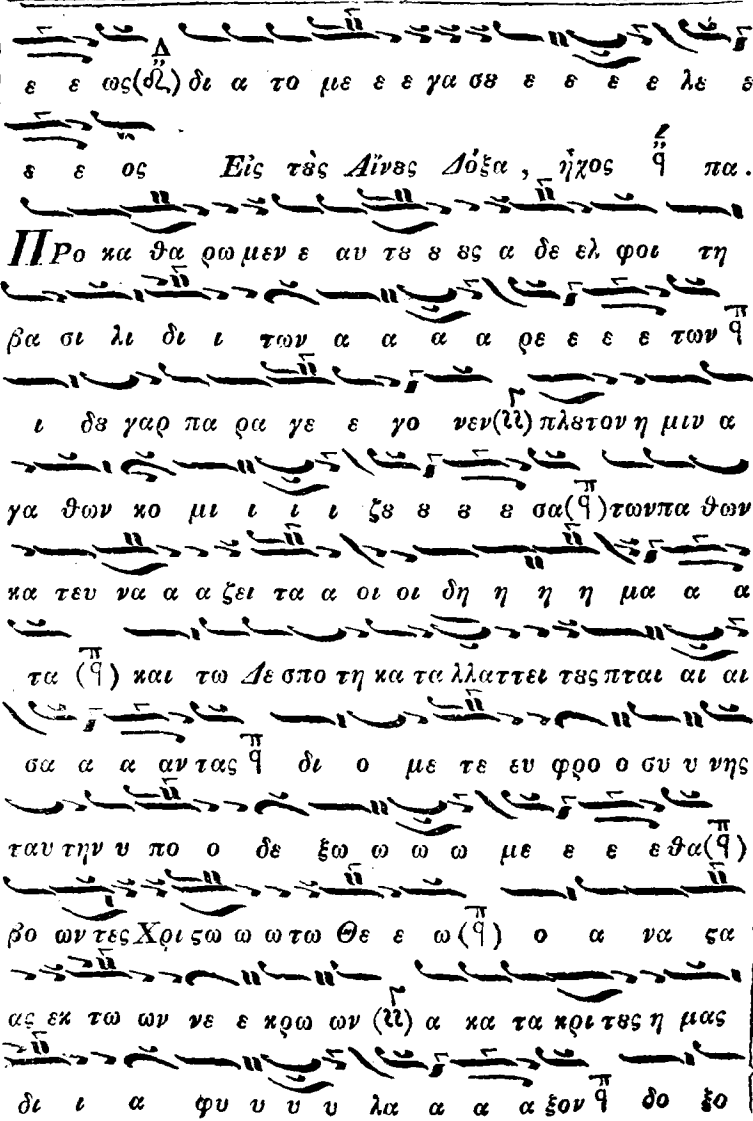 ε ε ως (Δ) δι α το με ε ε γα σȣ ε ε ε ε λε ε
ε ε ος Εἰς τȣ̀ς Αἴνȣς Δόξα, ἦχος πα.
ΠΡο κα θα ρω μεν ε αυ τȣ ȣ ȣς α δε ελ φοι τη
βα σι λι δι ι των α α α α ρε ε ε ε των
ι δȣ γαρ πα ρα γε ε γο νεν πλȣτον η μιν α
γα θων κο μι ι ι ι ζȣ ȣ ȣ ȣ σα των πα θων
κα τευ να α α ζει τα α οι οι δη η η η μα α α
τα και τω Δε σπο τη κα τα λλαττει τȣς πται αι αι
σα α α αν τας δι ο με τε ευ φρο ο συ υ νης
ταυ την υ πο ο δε ξω ω ω ω με ε ε ε θα
βο ων τες Χρι ϛω ω ω τω Θε ε ω ο α να ϛα
ας εκ τω ων νε ε κρω ων α κα τα κρι τȣς η μας
δι ι α φυ υ υ υ λα α α α ξον δο ξο